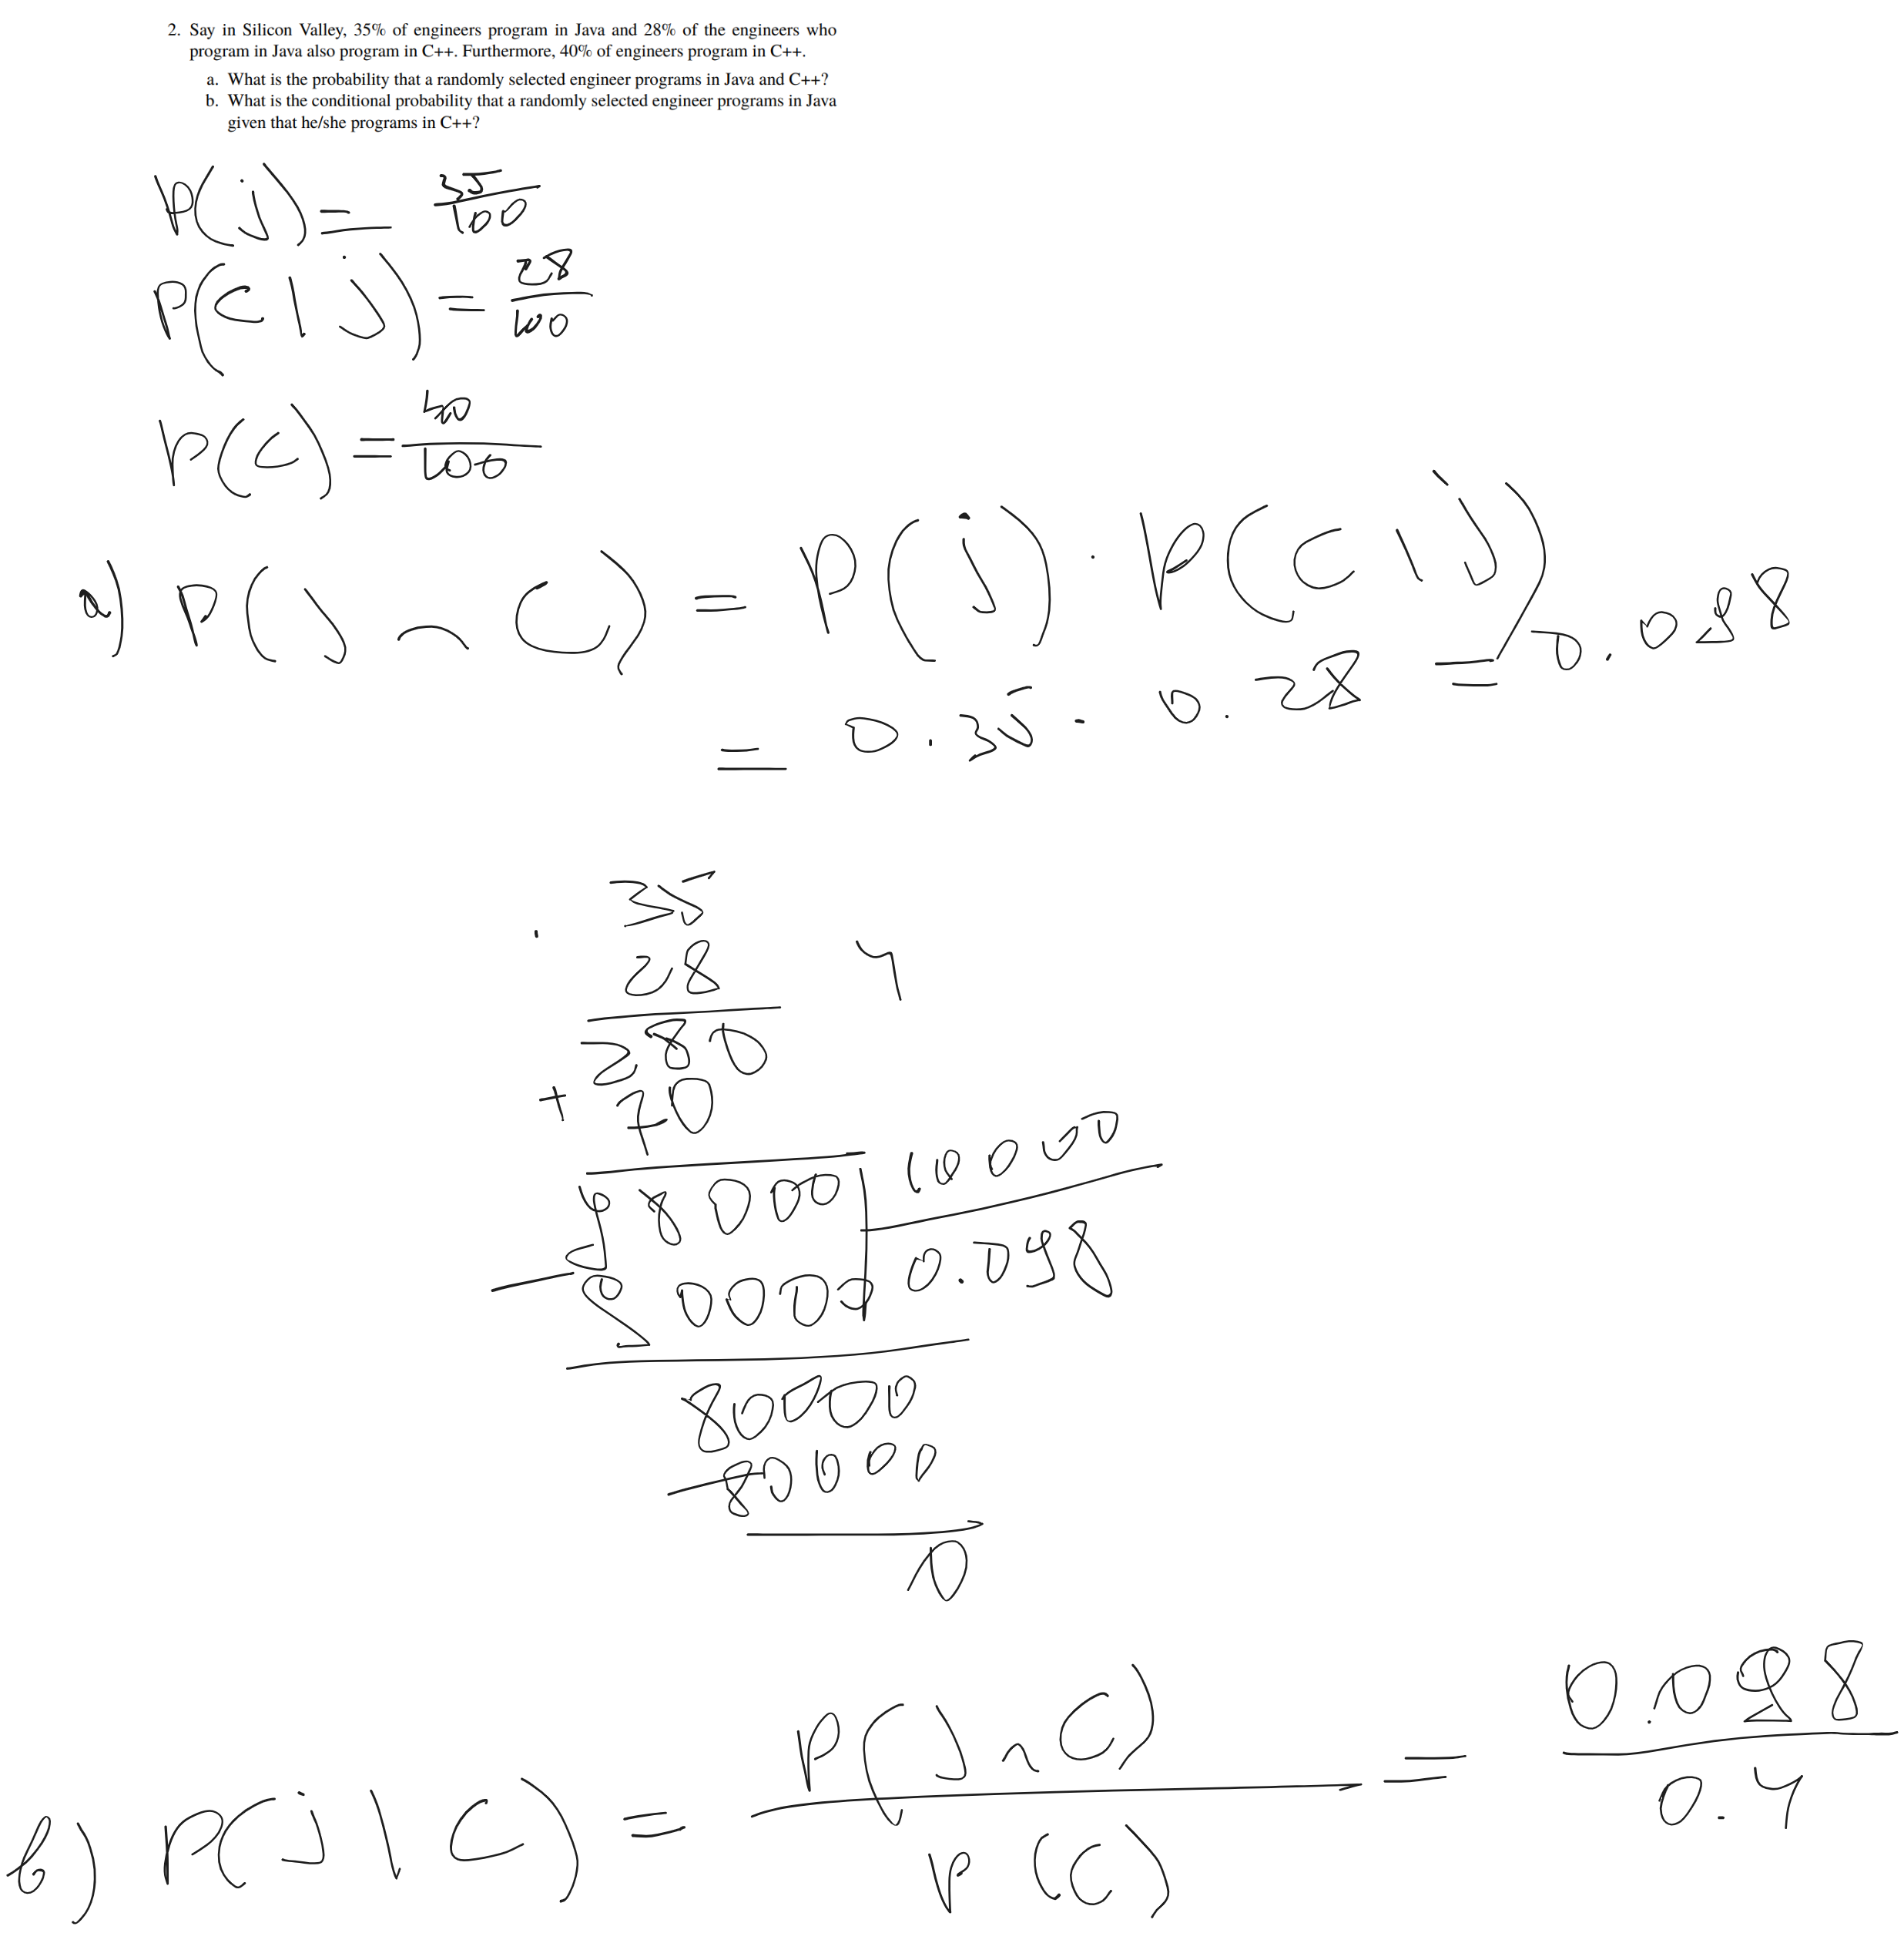 2. Say in Silicon Valley, 35% of engineers program in Java and 28% of the engineers who
program in Java also program in C++. Furthermore, 40% of engineers program in C++.
a. What is the probability that a randomly selected engineer programs in Java and C++?
b. What is the conditional probability that a randomly selected engineer programs in Java
given that he/she programs in C++?
P(j) = 35/100
P(C|j) = 28/100
P(C) = 40/100
a) P(J ∩ C) = P(j) · P(C|j)
= 0.35 · 0.28 = 0.098
35
28
280
+ 70
98000 | 100000
- 90000 | 0.098
80000
- 80000
0
b) P(j|C) = P(J ∩ C)/P(C) = 0.098/0.4